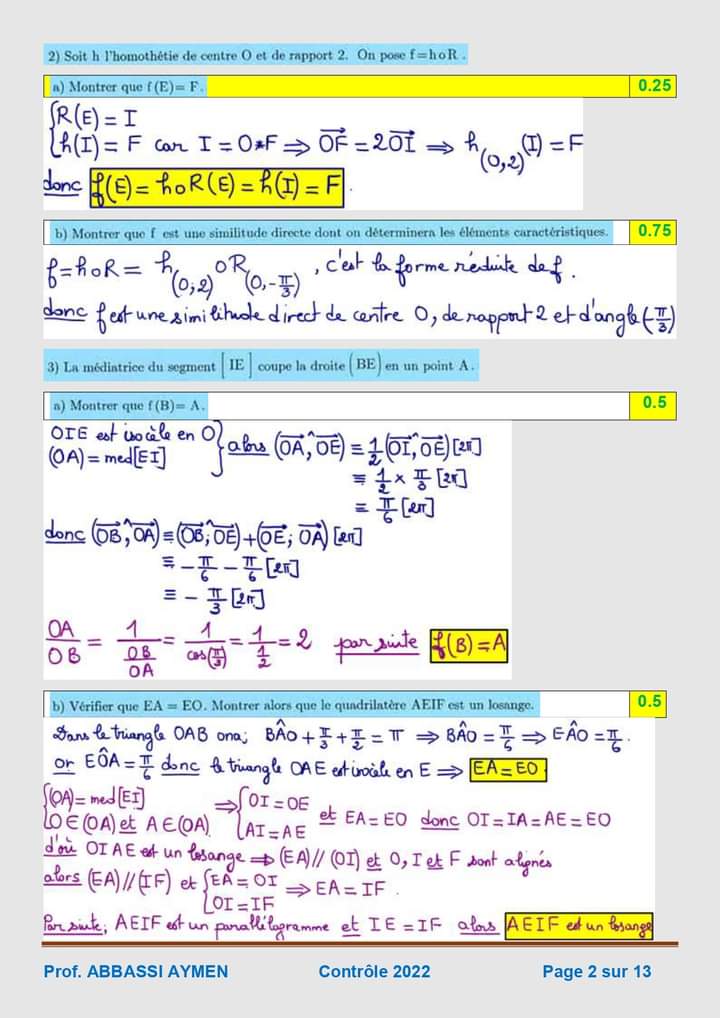 2) Soit h l'homothétie de centre O et de rapport 2. On pose f = h o R .
a) Montrer que f (E)= F . 0.25
{R(E) = I
{h(I) = F car I = O*F ⇒ OF⃗ = 2OI⃗ ⇒ h(O,2)(I) = F
donc f(E) = hoR(E) = h(I) = F .
b) Montrer que f est une similitude directe dont on déterminera les éléments caractéristiques. 0.75
f = hoR = h(O;2) o R(O,-π/3) , c'est la forme réduite de f.
donc f est une similitude direct de centre O, de rapport 2 et d'angle (-π/3)
3) La médiatrice du segment [ IE ] coupe la droite ( BE ) en un point A .
a) Montrer que f (B)= A . 0.5
OIE est isocèle en O } alors (OA⃗,^OE⃗) ≡ 1/2 (OI⃗,^OE⃗) [2π]
(OA) = med[EI]
≡ 1/2 × π/3 [2π]
≡ π/6 [2π]
donc (OB⃗,^OA⃗) ≡ (OB⃗;^OE⃗) + (OE⃗;^OA⃗) [2π]
≡ - π/6 - π/6 [2π]
≡ - π/3 [2π]
OA/OB = 1/(OB/OA) = 1/cos(π/3) = 1/(1/2) = 2 par suite f(B) = A
b) Vérifier que EA = EO. Montrer alors que le quadrilatère AEIF est un losange. 0.5
Dans le triangle OAB ona; BÂO + π/3 + π/2 = π ⇒ BÂO = π/6 ⇒ EÂO = π/6 .
or EÔA = π/6 donc le triangle OAE est isocèle en E ⇒ EA = EO
{(OA) = med[EI] ⇒ {OI = OE et EA = EO donc OI = IA = AE = EO
{O∈(OA) et A∈(OA) {AI = AE
d'où OIAE est un losange ⇒ (EA) // (OI) et O, I et F sont alignés
alors (EA) // (IF) et {EA = OI ⇒ EA = IF .
{OI = IF
Par suite; AEIF est un parallélogramme et IE = IF alors AEIF est un losange
Prof. ABBASSI AYMEN Contrôle 2022 Page 2 sur 13